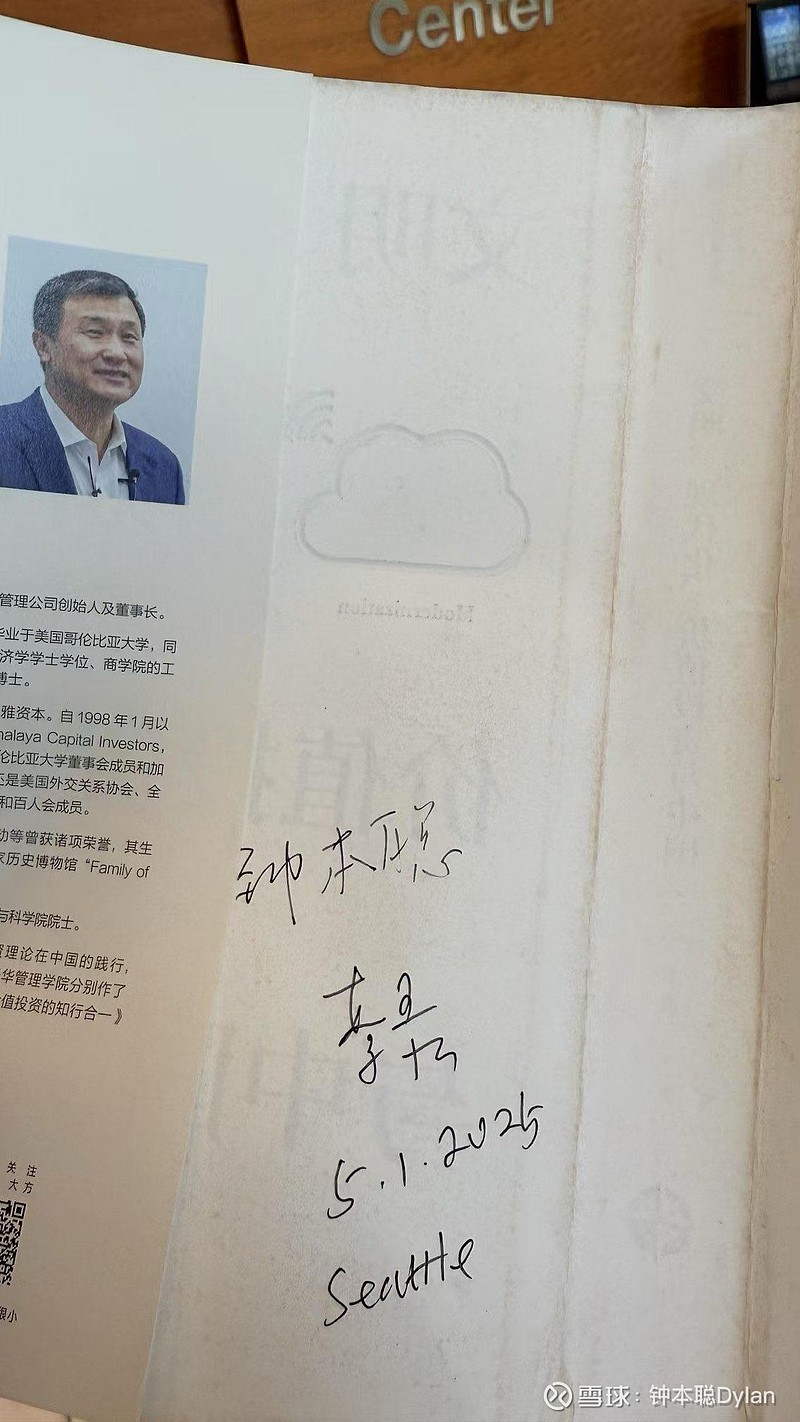 Center
管理公司创始人及董事长。
毕业于美国哥伦比亚大学，同
济学学士学位、商学院的工
博士。
雅资本。自 1998 年 1 月以
malaya Capital Investors,
伦比亚大学董事会成员和加
还是美国外交关系协会、全
和百人会成员。
动等曾获诸项荣誉，其生
家历史博物馆“Family of
与科学院院士。
资理论在中国的践行，
华管理学院分别作了
值投资的知行合一》
关注
大方
很小
文明
Modernization
价值投
与中
钟本聪
李录
5.1.2025
Seattle
雪球：钟本聪Dylan